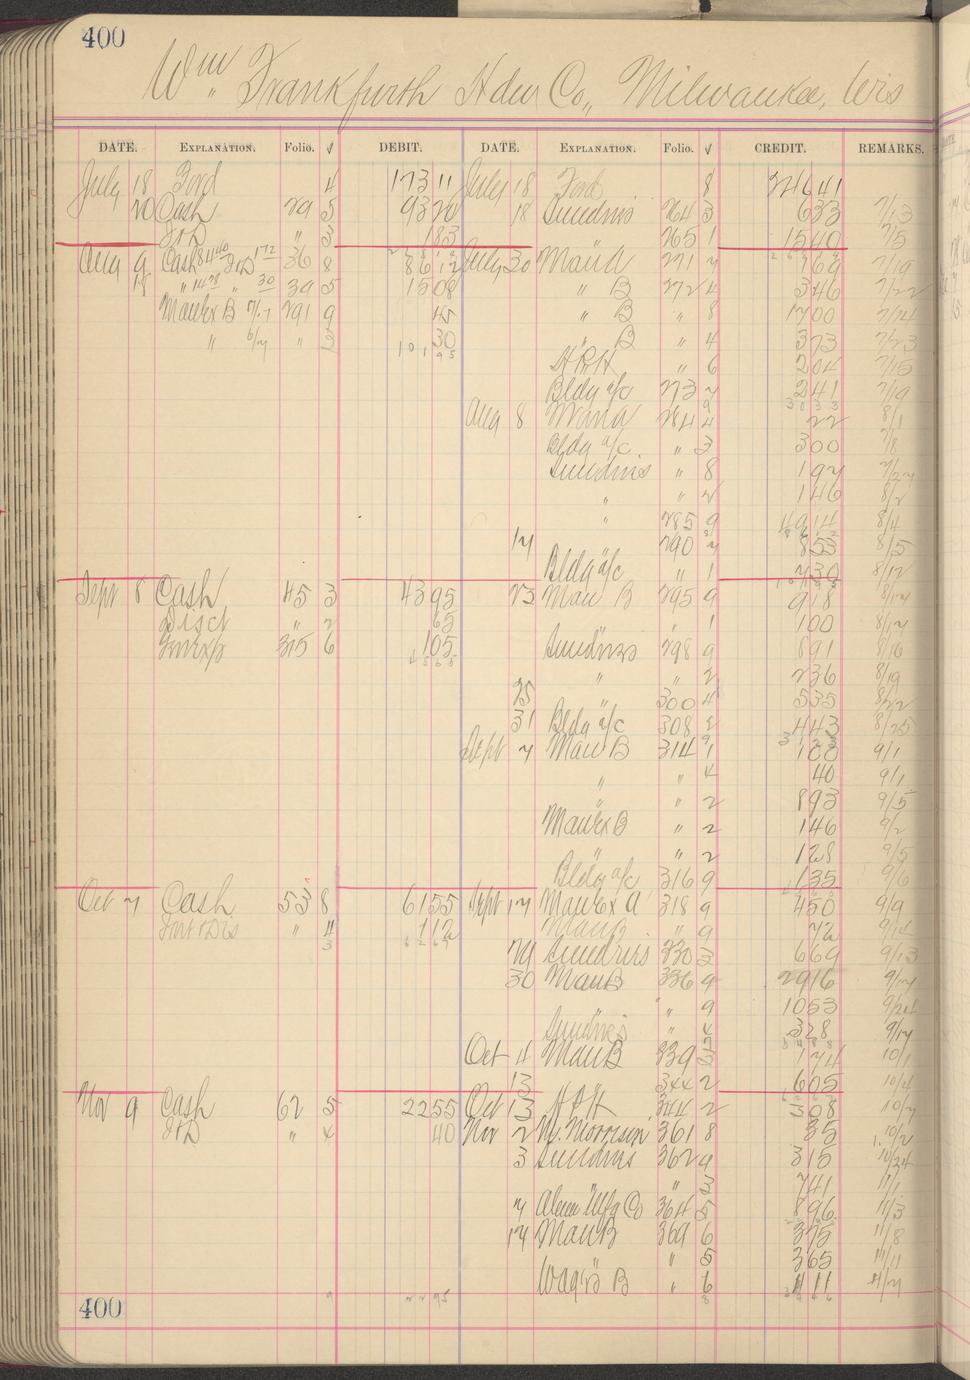 400
Wm Frankfurth Hdw Co., Milwaukee, Wis
DATE. EXPLANATION. Folio. √ DEBIT. DATE. EXPLANATION. Folio. √ CREDIT. REMARKS.
July 18 Ford 4 173 11 July 18 Ford 8 246 41
20 Cash 29 5 93 20 18 Sundries 264 3 6 33 7/13
I&D " 3 1 83 265 1 15 40 7/5
Aug 9 Cash 84 40 I&D 1 72 36 8 86 12 July 20 Manu 271 7 1 69 7/19
18 " 14 78 " 30 39 5 15 08 " B 272 4 3 46 7/22
Manex B 7/7 291 9 45 " B " 8 17 00 7/14
" 6/7 " 2 30 " B " 4 3 73 7/23
101 95 HRH " 6 2 04 7/15
Bldg a/c 273 7 2 41 7/19
Aug 8 Manu 284 4 22 8/1
Bldg a/c " 3 3 00 7/8
Sundries " 8 1 97 7/27
" " 2 1 46 8/2
" 285 9 49 14 8/4
17 290 7 8 53 8/5
Bldg a/c " 1 7 30 8/12
Sept 8 Cash 45 3 43 95 23 Man B 295 9 9 18 8/17
Disct " 2 65 " 1 1 00 8/17
Genexp 315 6 1 05 Sundries 298 9 8 91 8/16
45 65 " " 2 2 36 8/19
25 300 4 5 35 8/22
31 Bldg a/c 308 2 4 43 8/25
Sept 7 Man B 314 1 1 00 9/1
" " 4 40 9/1
" " 2 8 93 9/5
Manex B " 2 1 46 9/2
" " 2 1 28 9/5
Bldg a/c 316 9 1 35 9/6
Oct 7 Cash 53 8 61 55 Sept 17 Manex a 318 9 4 50 9/9
Int & Dis " 4 1 12 Man B " 9 72 9/12
62 67 29 Sundries 330 3 6 69 9/13
30 Man B 336 9 29 16 9/17
" " 9 10 53 9/24
Sundries " 4 3 28 9/17
Oct 4 Man B 339 3 1 74 10/1
13 344 2 6 05 10/4
Nov 9 Cash 62 5 22 55 Oct 13 HRH 344 2 3 08 10/7
I&D " 4 40 Nov 2 W. Morrison 361 8 35 10/2
3 Sundries 362 9 3 15 10/24
" 3 7 41 11/1
7 Mfg Co 364 5 8 96 11/3
17 Man B 369 6 3 75 11/8
" " 5 3 65 11/11
B " 6 4 11 11/7
22 95
400